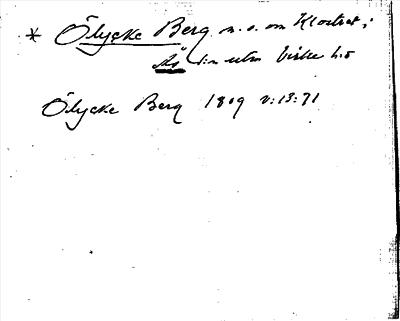 * Ölycke Berg n. o. om Klostret i
Ås s:n utm Viske h:d
Ölycke Berg 1809 v:13:71